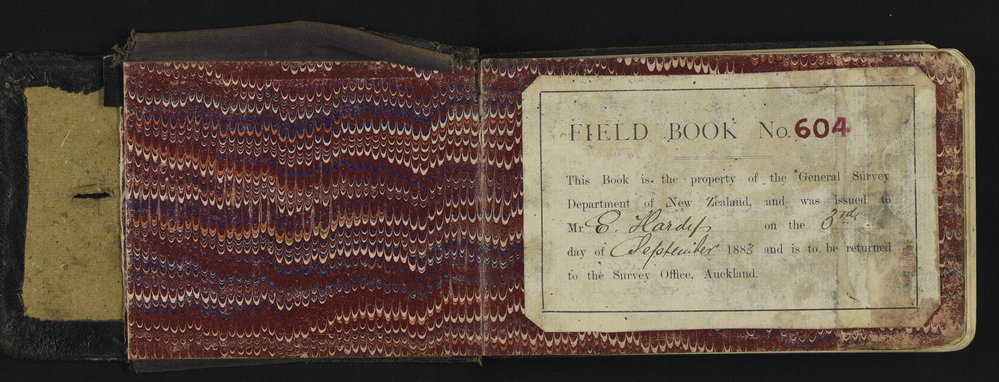 FIELD BOOK No. 604
This Book is the property of the General Survey
Department of New Zealand, and was issued to
Mr E. Hardy on the 3rd
day of September 1883 and is to be returned
to the Survey Office, Auckland.